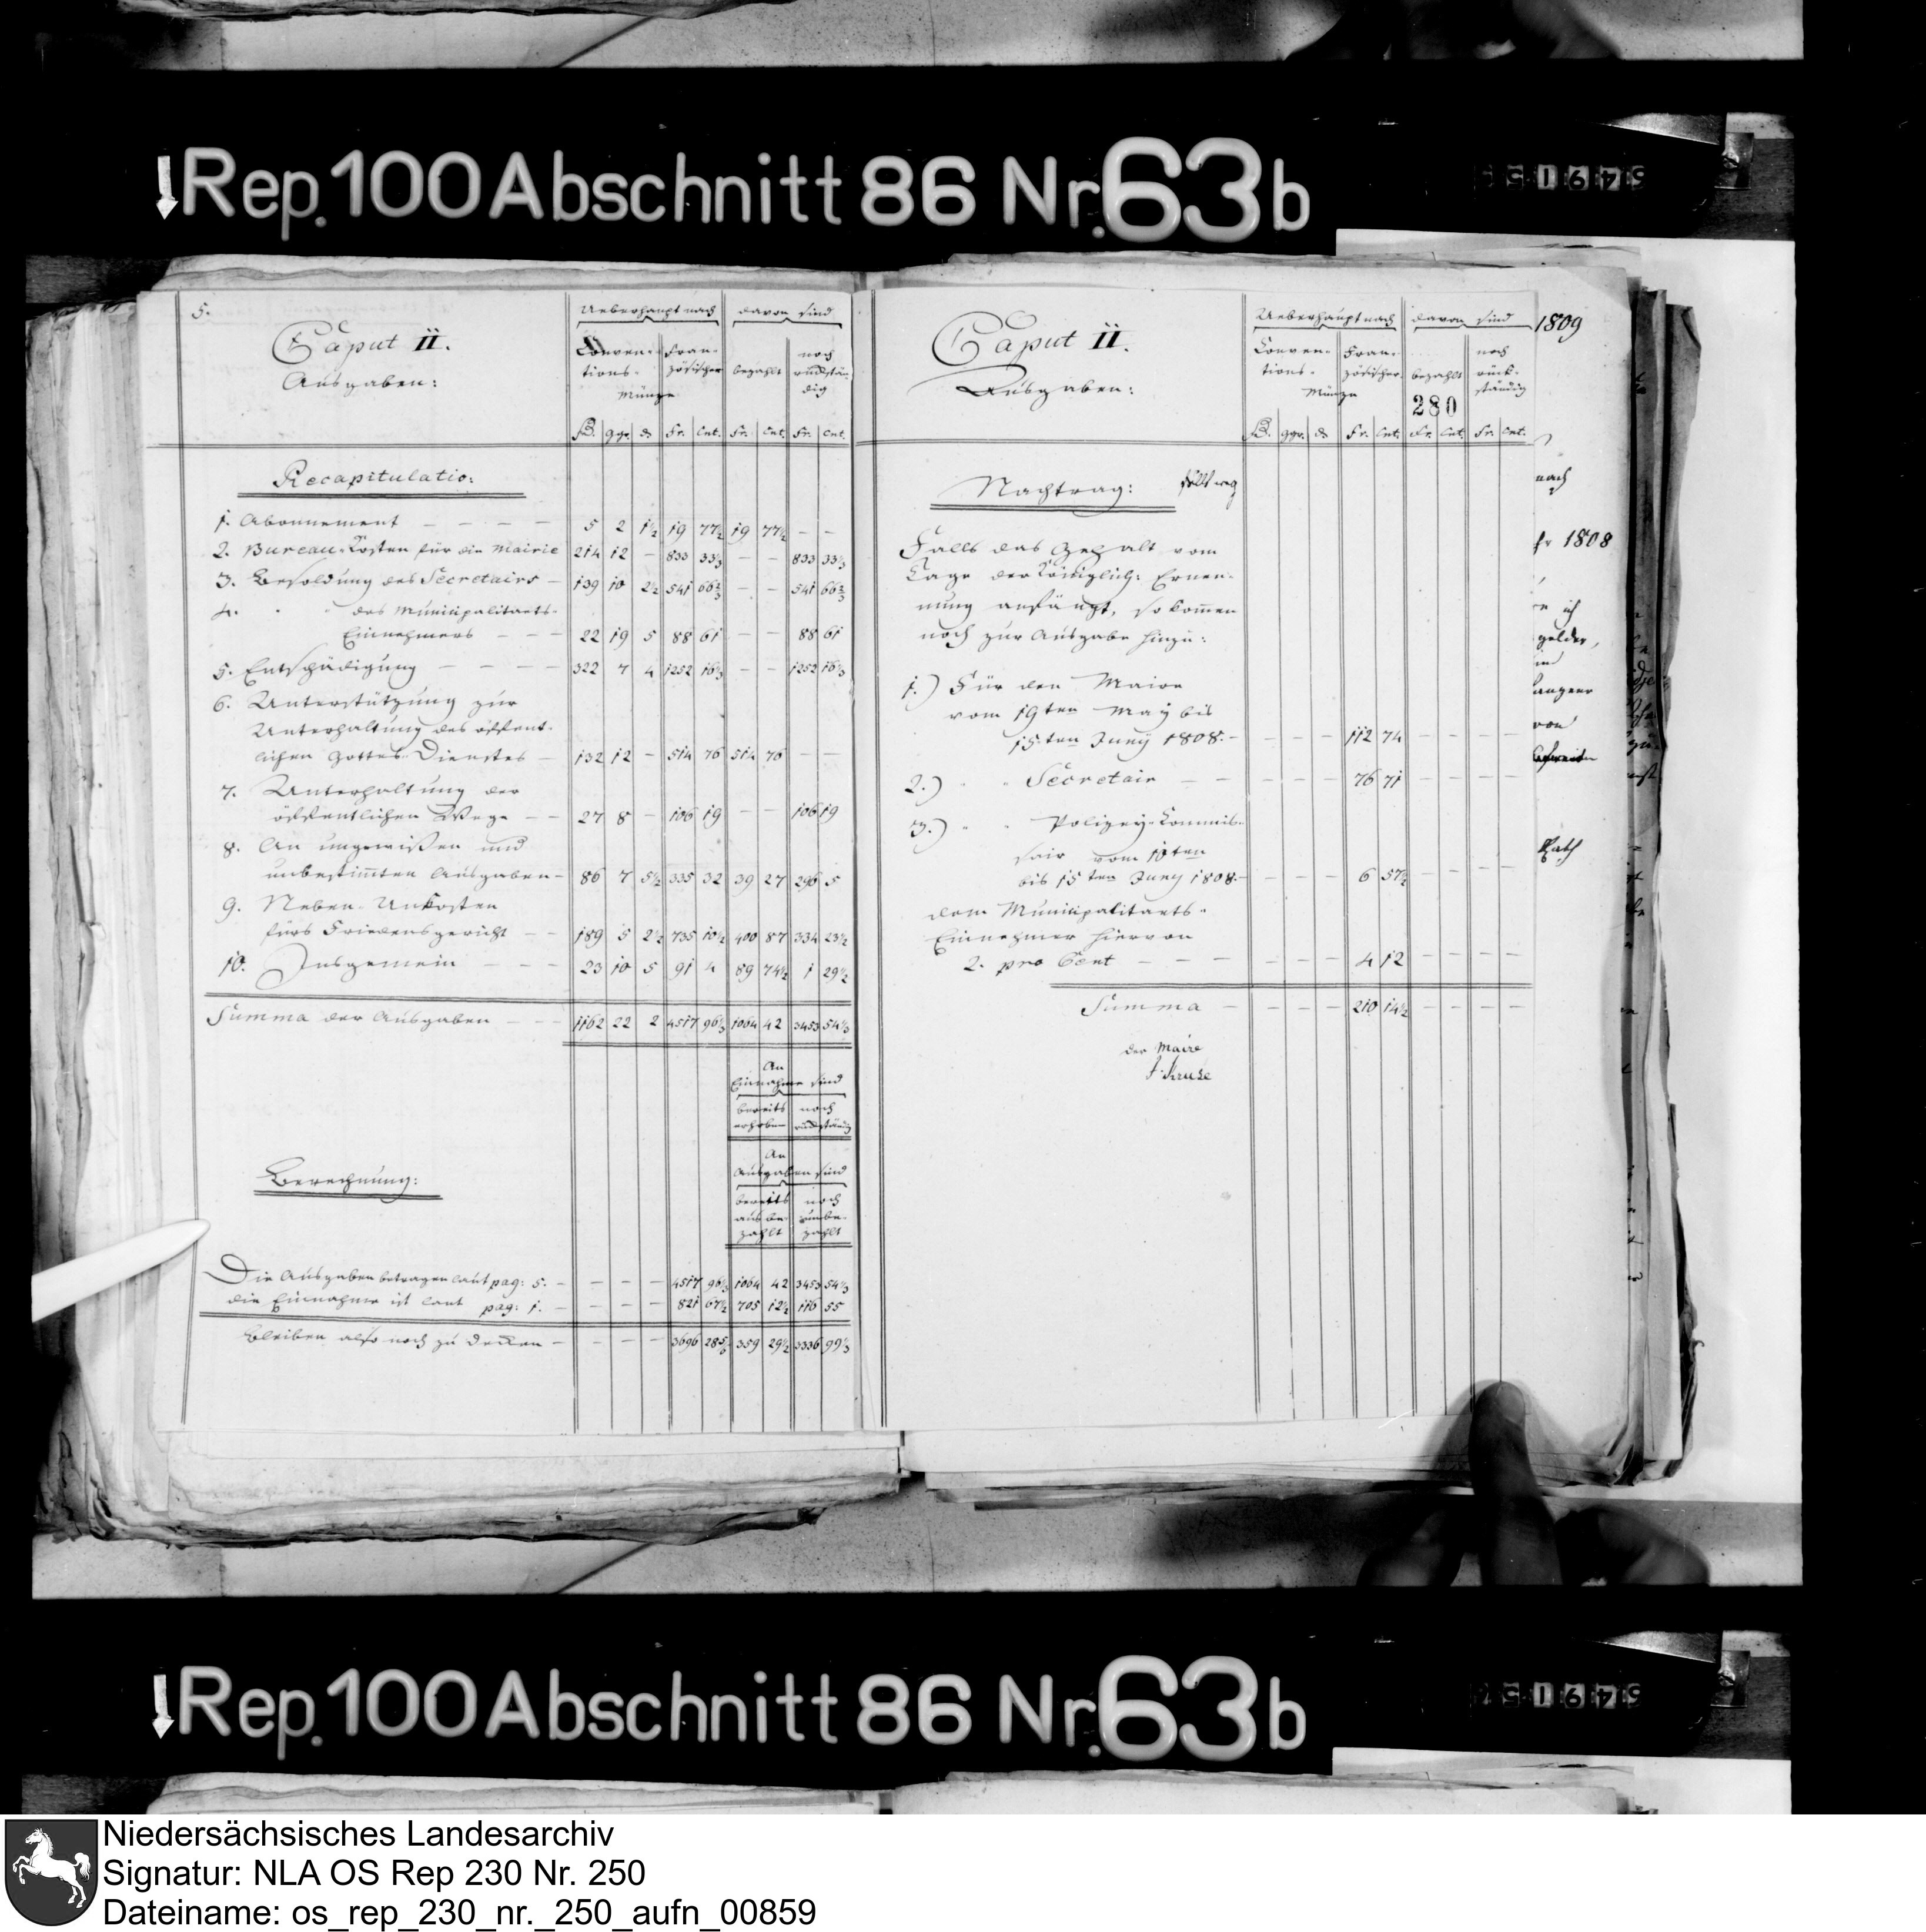 Rep. 100 Abschnitt 86 Nr. 63 b
5.
Caput II.
Ausgaben:
Ueberhaupt nach
davon sind
Conven-
tions-
Fran-
zösischer
Münze
bezahlt
noch
rückstän-
dig
ggr. Fr. Cnt. Fr. Cnt. Fr. Cnt.
Recapitulatio:
1. Abonnement — — — — 5 2 1½ 19 77½ 19 77½ — —
2. Bureau-Kosten für die Mairie 214 12 — 833 33⅓ — — 833 33⅓
3. Besoldung des Secretairs — 139 10 2½ 541 66⅔ — — 541 66⅔
4. " " des Municipalitaets-
Einnehmers — — — 22 19 5 88 61 — — 88 61
5. Entschädigung — — — — 322 7 4 1252 16⅓ — — 1252 16⅓
6. Unterstützung zur
Unterhaltung des öffent-
lichen Gottes-Dienstes — 132 12 — 514 76 514 76 — —
7. Unterhaltung der
öffentlichen Wege — — 27 8 — 106 19 — — 106 19
8. An ungewißen und
unbestimmten Ausgaben — 86 7 5½ 335 32 39 27 296 5
9. Neben-Unkosten
fürs Friedensgericht — — 189 5 2½ 735 10½ 400 87 334 23½
10. Insgemein — — — 23 10 5 91 4 89 74½ 1 29½
Summa der Ausgaben — — — 1162 22 2 4517 96⅓ 1064 42 3453 54⅓
An
Einnahme sind
bereits
erhoben
noch
rückständig
An
Ausgaben sind
bereits
ausbe-
zahlt
noch
unbe-
zahlt
Berechnung:
Die Ausgaben betragen laut pag: 5. — — — — 4517 96⅓ 1064 42 3453 54⅓
die Einnahme ist laut pag: 1. — — — — 821 67½ 705 12½ 116 55
Bleiben also noch zu decken — — — — 3696 28⅚ 359 29½ 3336 99⅓
Caput II.
Ausgaben:
Ueberhaupt nach
davon sind
Conven-
tions-
Fran-
zösischer
Münze
bezahlt
280
noch
rück-
ständig
ggr. Fr. Cnt. Fr. Cnt. Fr. Cnt.
Nachtrag: fällt weg
Falls das Gehalt vom
Tage der Königlich: Ernen-
nung anfängt, so kommen
noch zur Ausgabe hinzu:
1.) Für den Maire
vom 19ten May bis
15ten Juny 1808. — — — — 112 74 — — — —
2.) " " Secretair — — — — — 76 71 — — — —
3.) " " Polizey-Commis-
sair vom 10ten
bis 15ten Juny 1808. — — — — 6 57½ — — — —
dem Municipalitaets-
Einnehmer hiervon
2. pro Cent — — — — — — 4 12 — — — —
Summa — — — — 210 14½ — — — —
der Maire
J. Kruse
1809
nach
1808
ich
gelder,
von
Rep. 100 Abschnitt 86 Nr. 63 b
Niedersächsisches Landesarchiv
Signatur: NLA OS Rep 230 Nr. 250
Dateiname: os_rep_230_nr._250_aufn_00859